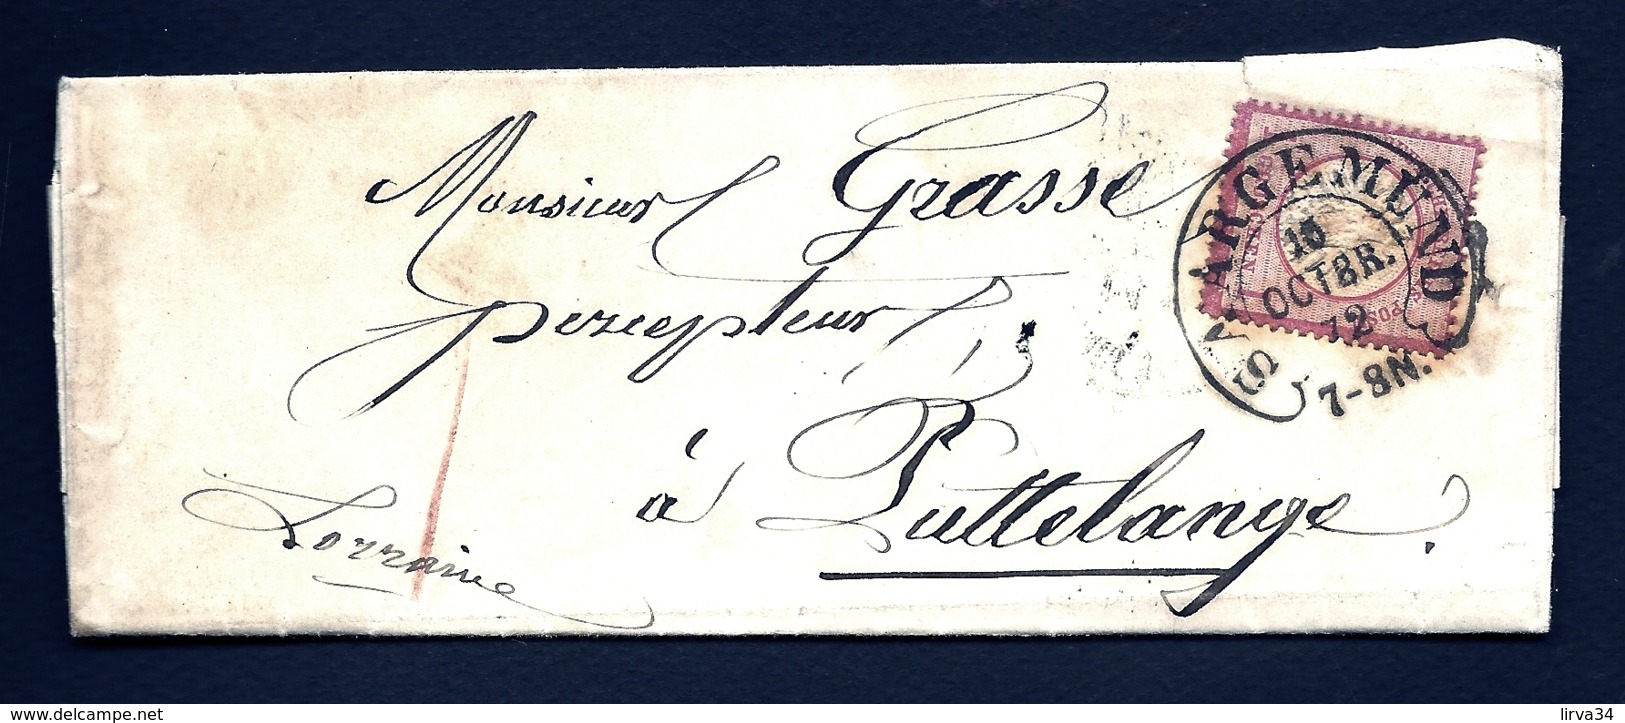 Monsieur Grasse
percepteur,
à Puttelange.
Lorraine
SAARGEMÜND
15
OCTBR.
72
7-8N.
POS
delcampe.net
lirva34